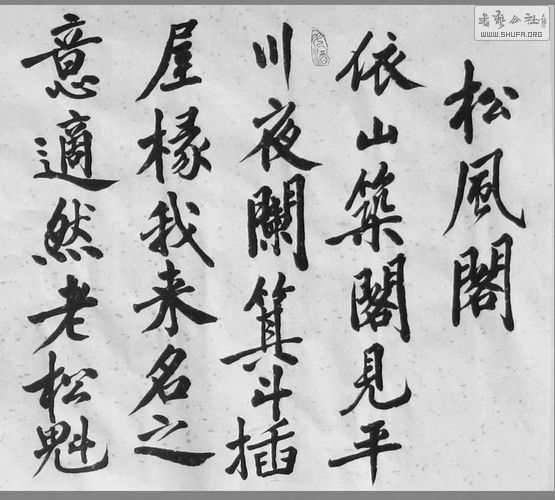 松風閣
依山築閣見平
川夜闌箕斗插
屋椽我来名之
意適然老松魁
书艺公社
WWW.SHUFA.ORG